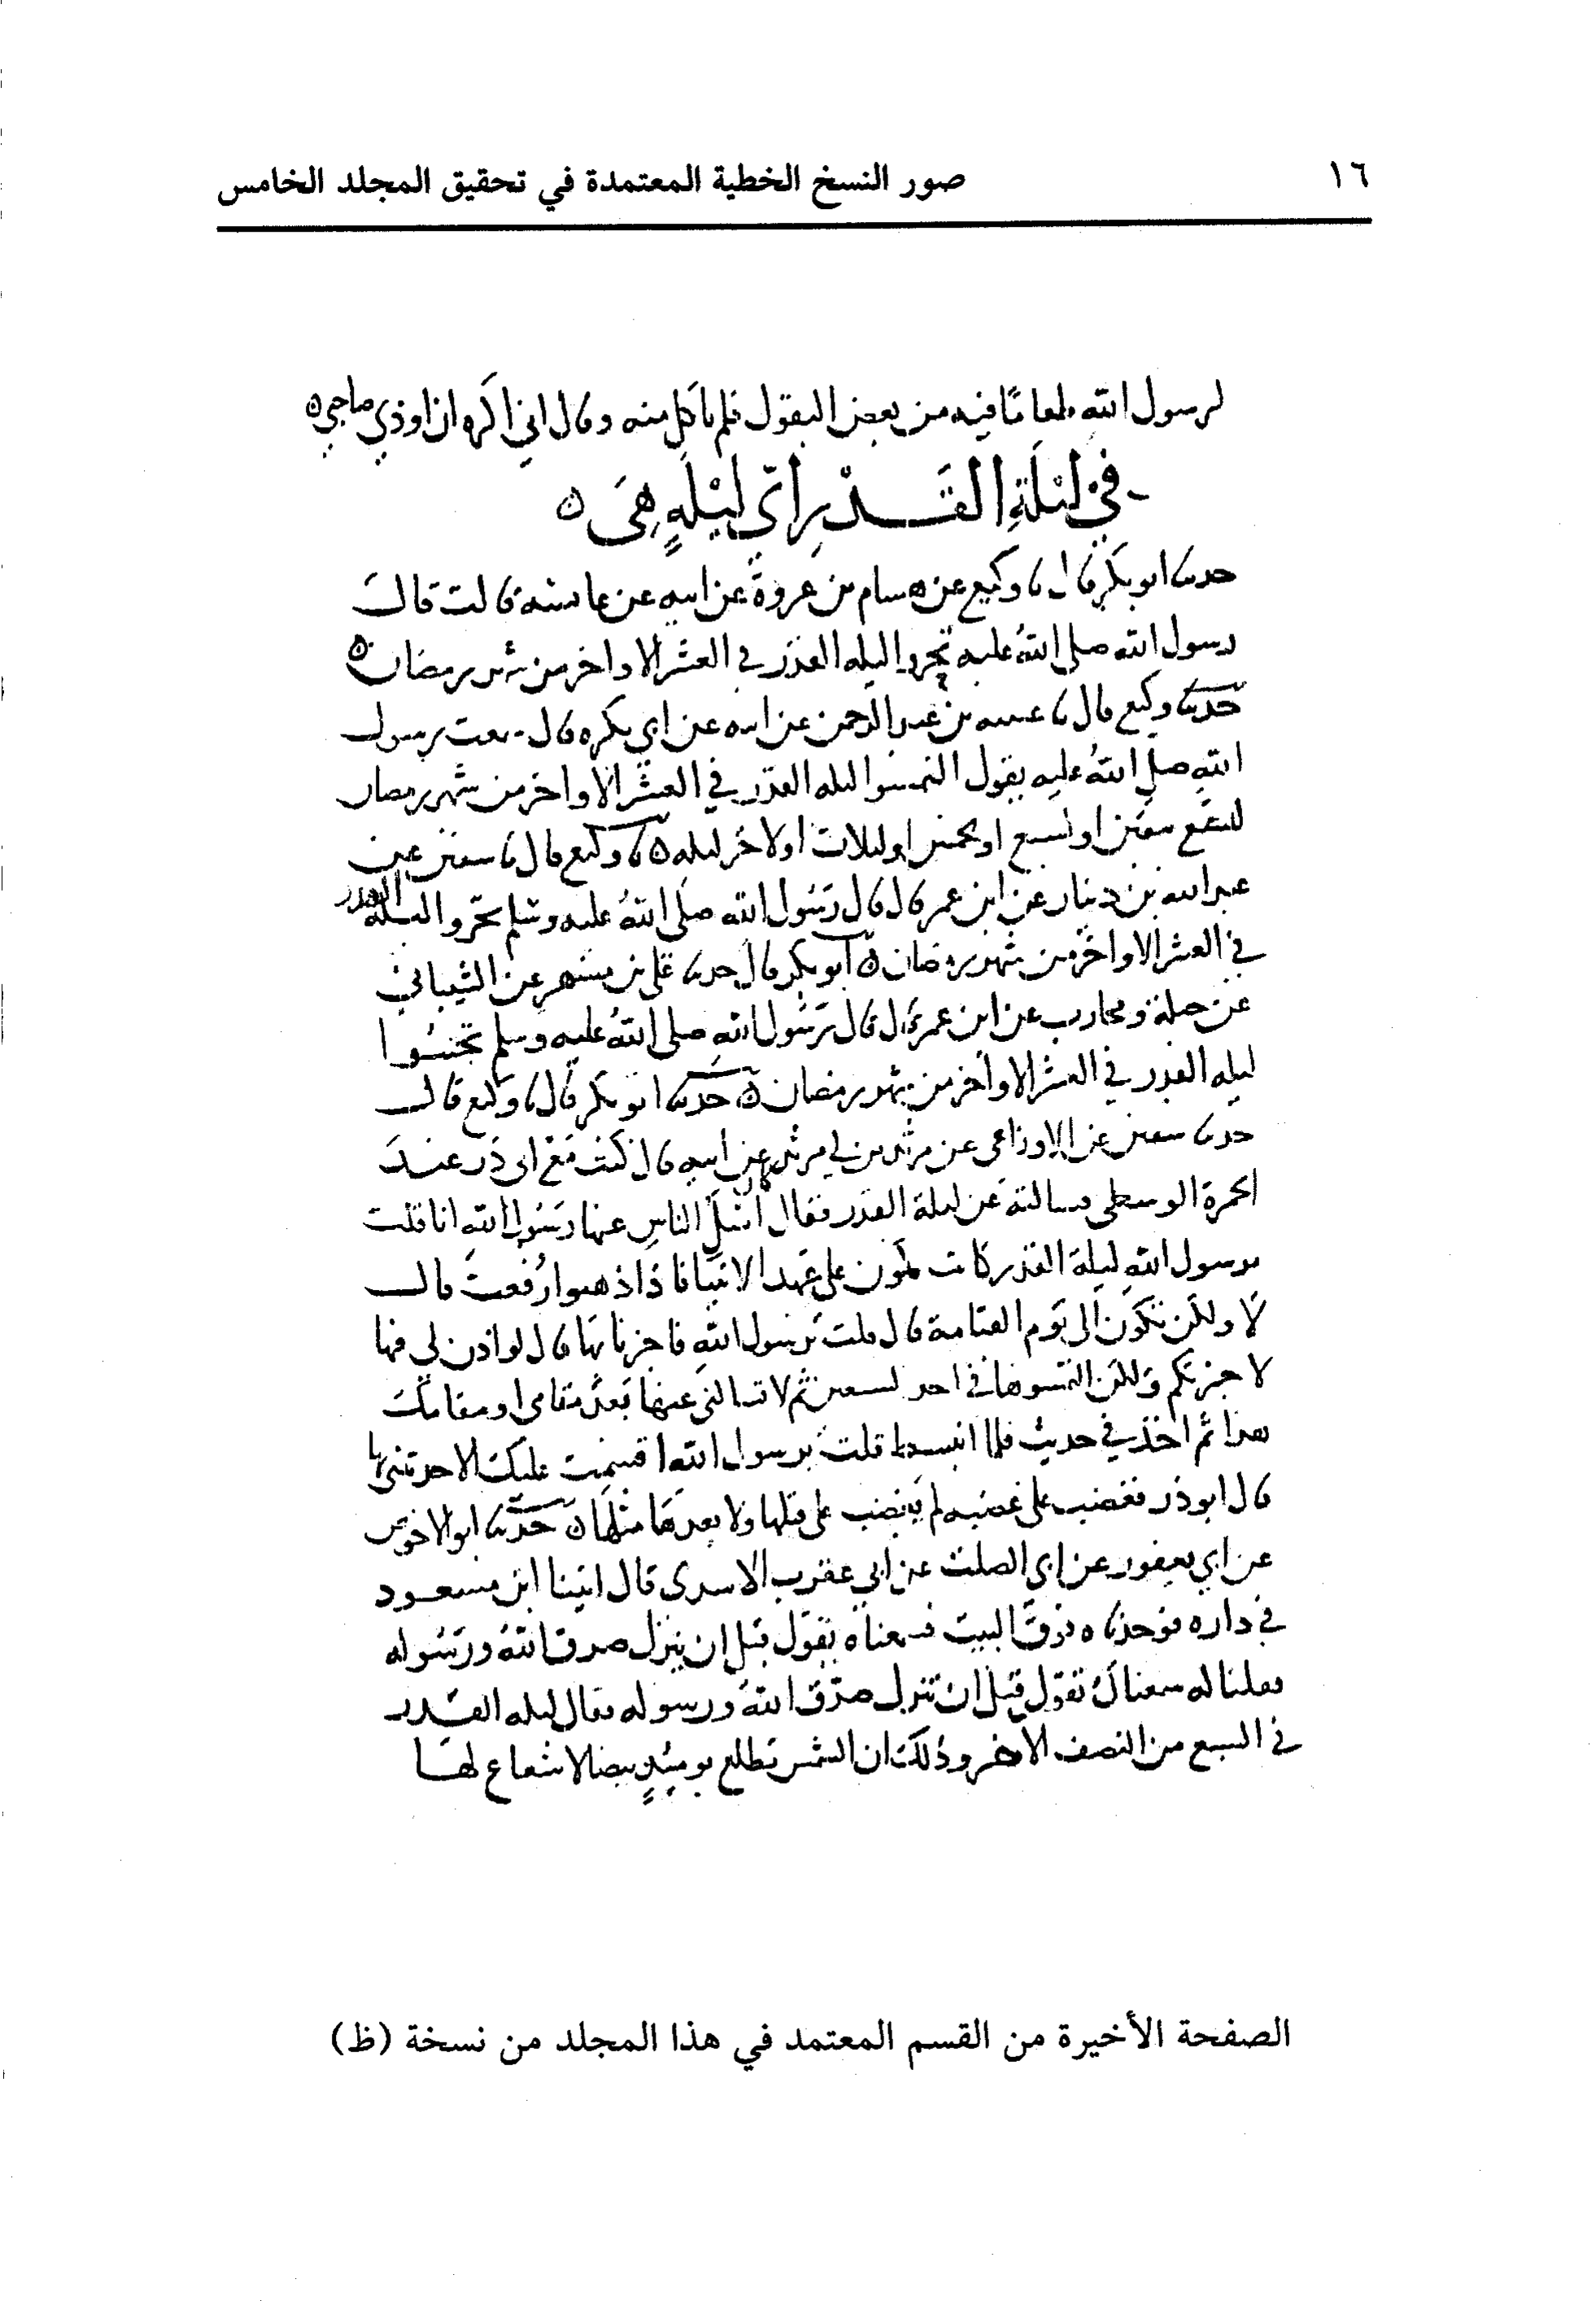 ١٦
صور النسخ الخطية المعتمدة في تحقيق المجلد الخامس
لرسول الله طعاما فيه من بعض البقول فلم ياكل منه وقال اني اكره ان اوذي صاحبي
في ليلة القدر اي ليلة هي
حدثنا ابو بكر قال نا وكيع عن هشام بن عروة عن ابيه عن عائشة قالت قال
رسول الله صلى الله عليه تحروا ليلة القدر في العشر الاواخر من شهر رمضان
حدثنا وكيع قال نا عيينة بن عبد الرحمن عن ابيه عن ابي بكرة قال سمعت رسول
الله صلى الله عليه يقول التمسوا ليلة القدر في العشر الاواخر من شهر رمضان
لتسع بقين او لسبع او لخمس او لثلاث او لاخر ليلة نا وكيع قال نا سفين عن
عبد الله بن دينار عن ابن عمر قال قال رسول الله صلى الله عليه وسلم تحروا ليلة القدر
في العشر الاواخر من شهر رمضان ابو بكر قال حدثنا علي بن مسهر عن الشيباني
عن جبلة ومحارب عن ابن عمر قال قال رسول الله صلى الله عليه وسلم تحينوا
ليلة القدر في العشر الاواخر من شهر رمضان حدثنا ابو بكر قال نا وكيع قال
حدثنا سفين عن الاوزاعي عن مرثد بن ابي مرثد عن ابيه قال كنت مع ابي ذر عند
الجمرة الوسطى فسالته عن ليلة القدر فقال كان اسئل الناس عنها رسول الله انا قلت
يرسول الله ليلة القدر كانت تكون على عهد الانبيا فاذا ذهبوا رفعت قال
لا ولكن تكون الى يوم القيامة قال قلت يرسول الله فاخبرنا بها قال لو اذن لي فيها
لاخبرتكم ولكن التمسوها في احد السبعين ثم لا تسالني عنها بعد مقامي او مقامك
هذا ثم اخذ في حديث فلما انبسط قلت يرسول الله اقسمت عليك الا حدثتني بها
قال ابو ذر فغضب علي غضبة لم يغضب علي قبلها ولا بعدها مثلها حدثنا ابو الاحوص
عن ابي يعفور عن ابي الصلت عن ابي عقرب الاسدي قال اتينا ابن مسعود
في داره فوجدناه فوق البيت فسمعناه يقول قبل ان ينزل صدق الله ورسوله
فقلنا له سمعناك تقول قبل ان تنزل صدق الله ورسوله فقال ليلة القدر
في السبع من النصف الاخر وذلك ان الشمس تطلع يومئذ بيضا لا شعاع لها
الصفحة الأخيرة من القسم المعتمد في هذا المجلد من نسخة (ظ)